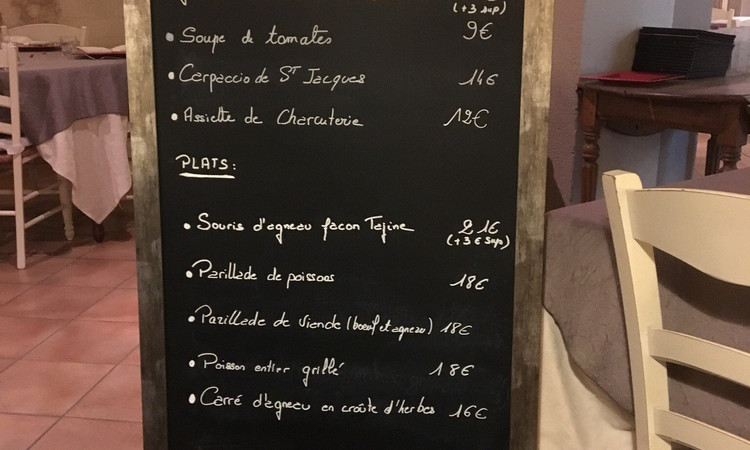 (+3 sup)
9€
• Soupe de tomates
• Carpaccio de ST Jacques 14€
• Assiette de Charcuterie 12€
PLATS:
• Souris d'agneau façon Tajine 21€
(+3€ sup)
• Parillade de poissons 18€
• Parillade de viande (boeuf et agneau) 18€
• Poisson entier grillé 18€
• Carré d'agneau en croûte d'herbes 16€